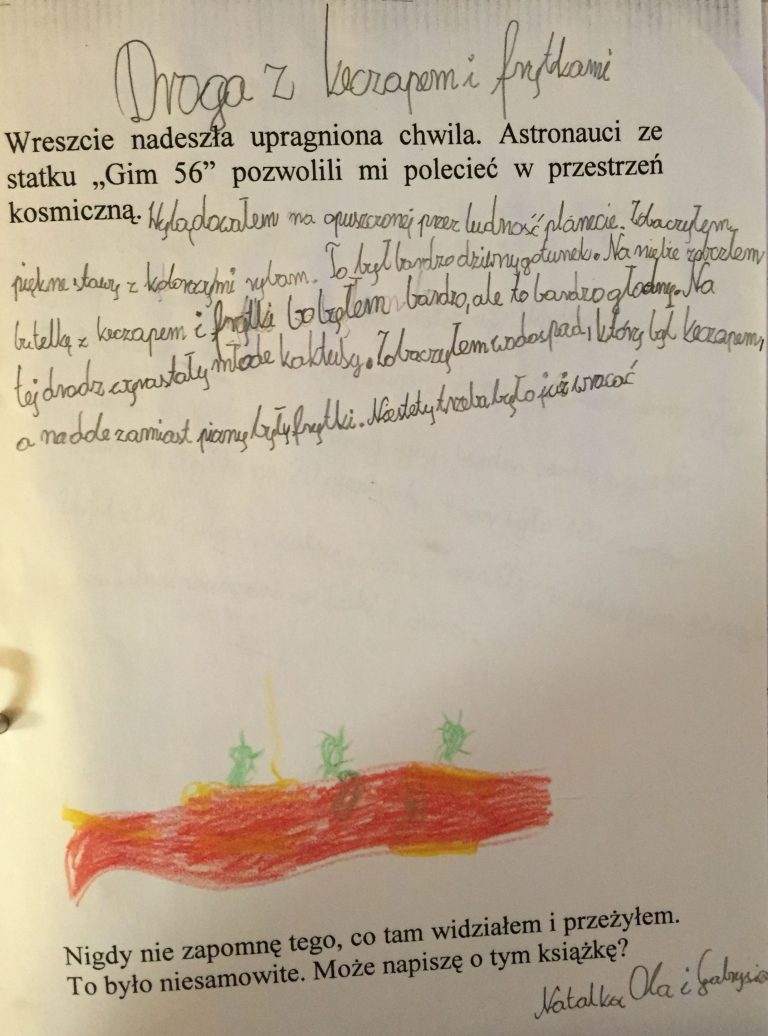 Droga z keczapem i frytkami
Wreszcie nadeszła upragniona chwila. Astronauci ze
statku „Gim 56” pozwolili mi polecieć w przestrzeń
kosmiczną. Wylądowałem na opuszczonej przez ludność planecie. Zobaczyłem
piękne stawy z kolorowymi rybam. To był bardzo dziwny gatunek. Na niebie
butelkę z keczapem i frytki bo byłem bardzo, ale to bardzo głodny. Na
tej drodz wyrastały młode kaktusy. Zobaczyłem wodospad, który był keczapem,
a na dole zamiast piany były frytki. Niestety trzeba było już wracać
Nigdy nie zapomnę tego, co tam widziałem i przeżyłem.
To było niesamowite. Może napiszę o tym książkę?
Natalka Ola i Gabrysia